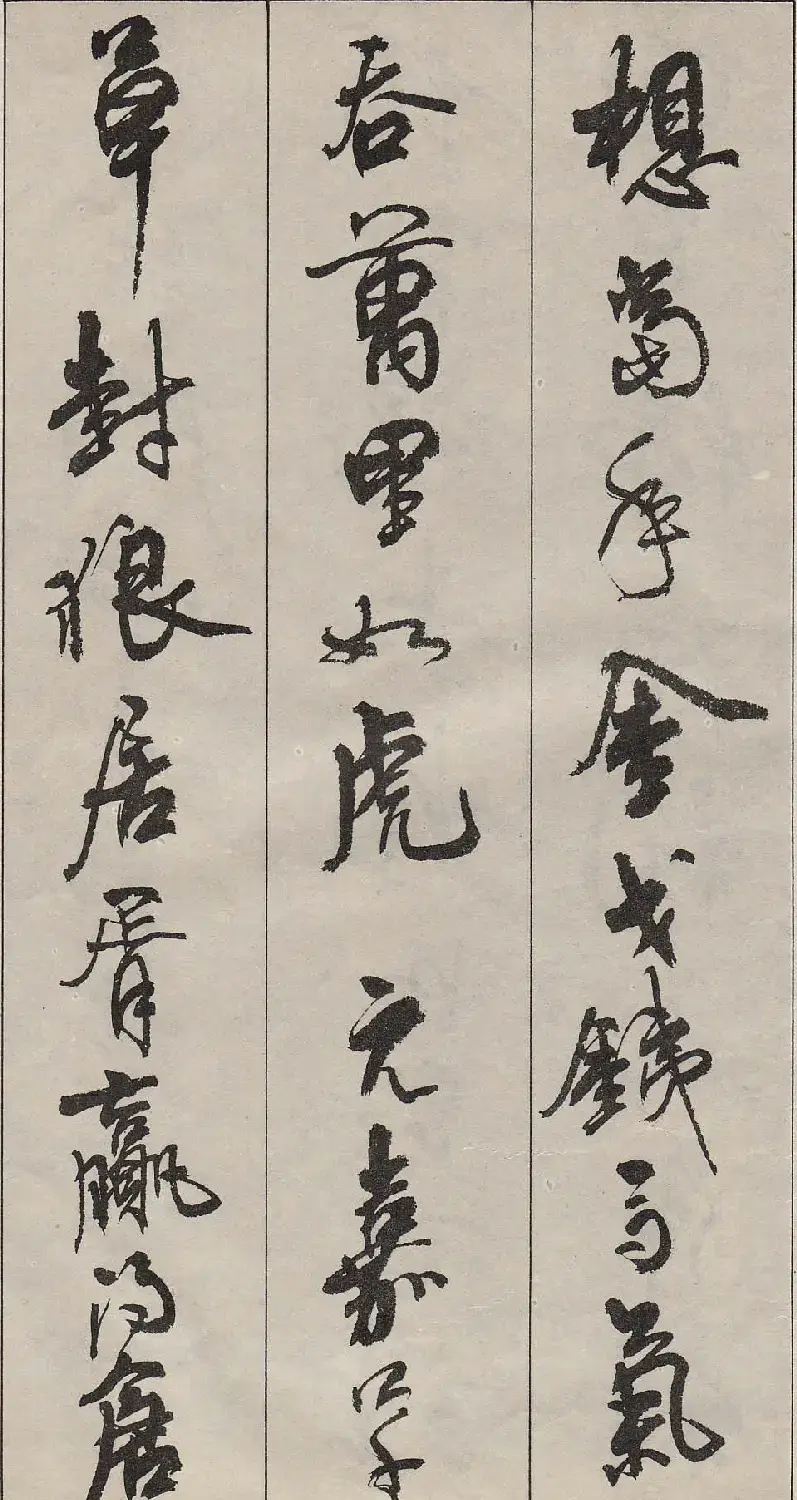 想當年金戈鐵馬氣
吞萬里如虎 元嘉草
草封狼居胥贏得倉